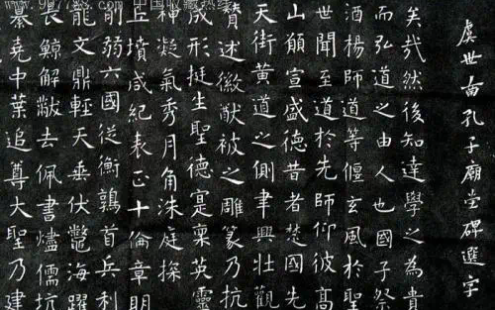 虞世南孔子廟堂碑選字
美哉然後知達學之為貴
而弘道之由人也國子祭
酒楊師道等偃玄風於聖
世聞至道於先師仰彼高
山願宣盛德昔者楚國先
天街黃道之側聿興壯觀
贊述徽猷被之雕篆乃抗
成形挺生聖德寔稟英靈
神凝氣秀月角珠庭探
丘墳咸紀表正十倫章明
削弱六國從衡鶉首兵利
龍文鼎輕天垂伏鱉海躍
長鯨解黻去佩書燼儒坑
纂堯中葉追尊大聖乃建